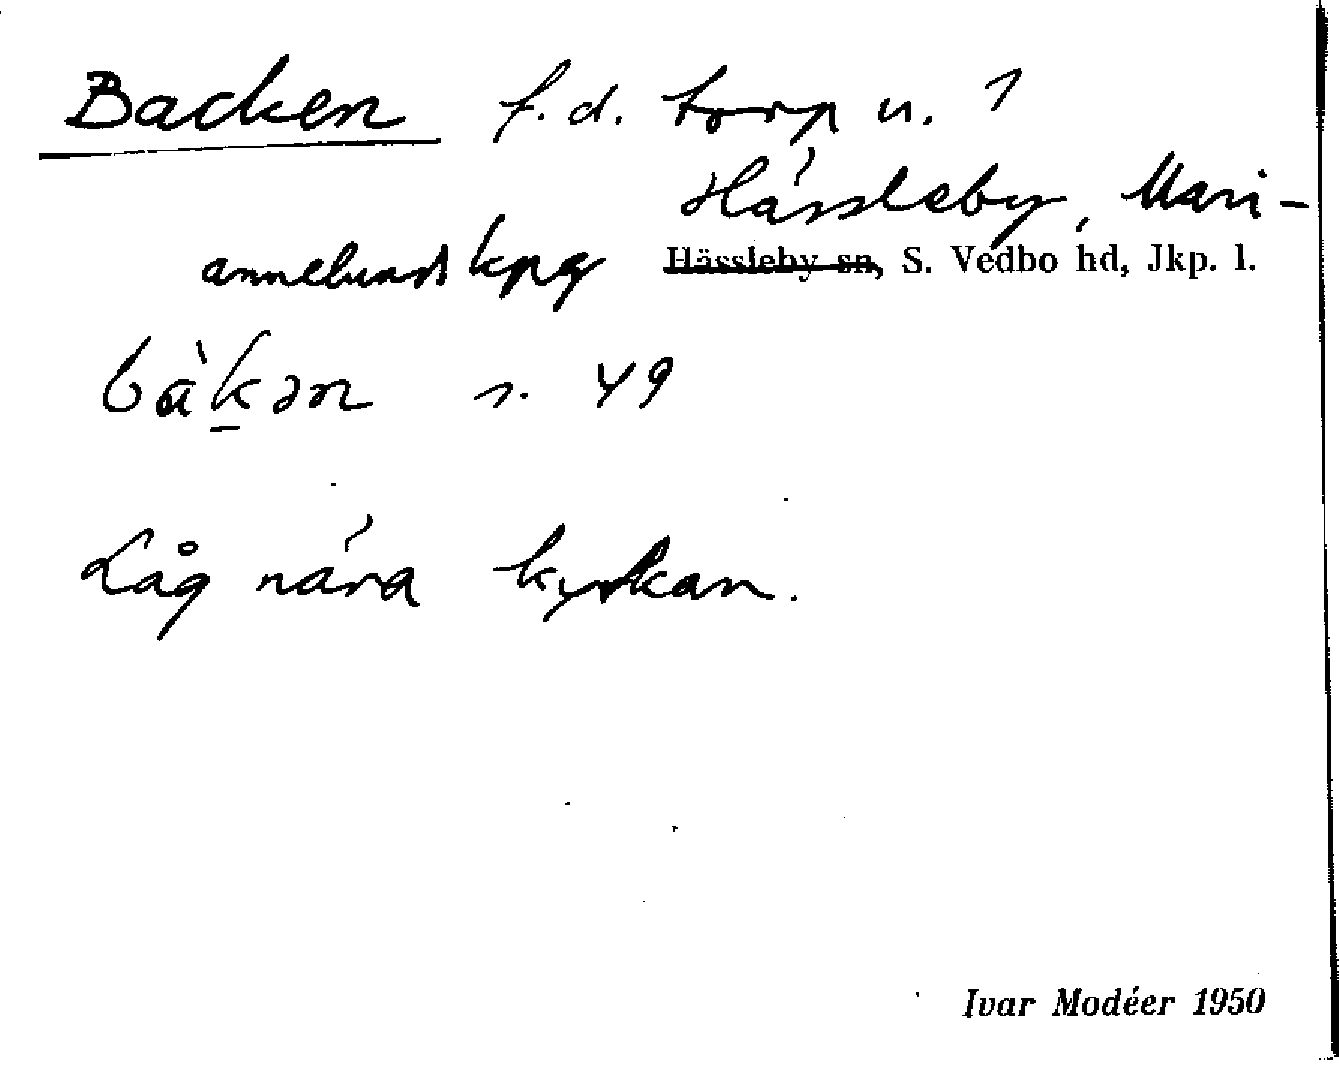 Backen f.d. torp u. 1
Hässleby, Mari-
annelunds kpg Hässleby sn, S. Vedbo hd, Jkp. l.
bàkən s. 49
Låg nära kyrkan.
Ivar Modéer 1950